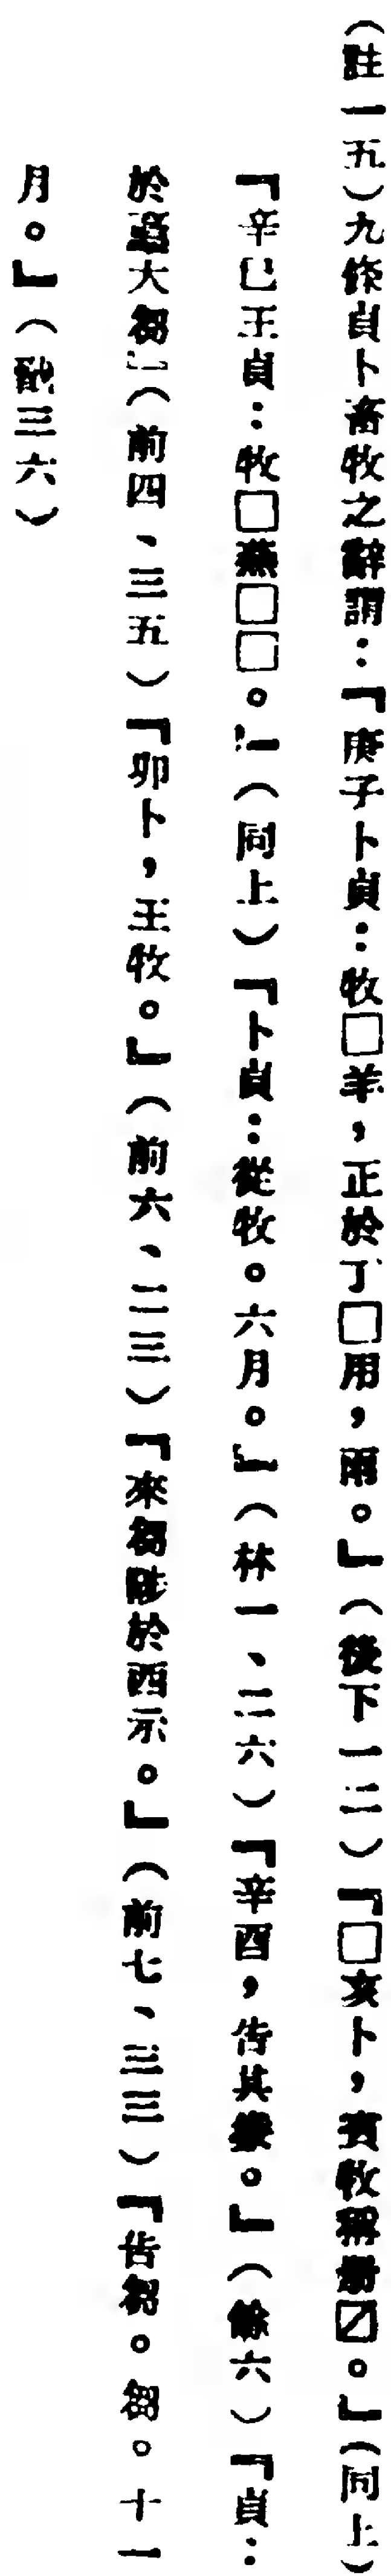 （註一五）九條貞卜畜牧之辭謂：「庚子卜貞：牧□羊，正於丁□用，雨。」（後下一二）「□亥卜，賓牧稱册〼。」（同上）
「辛巳王貞：牧□燕□□。」（同上）「卜貞：從牧。六月。」（林一、二六）「辛酉，告其。」（餘六）「貞：
於大芻」（前四、三五）「卯卜，王牧。」（前六、二三）「來芻陟於西示。」（前七、三三）「告芻。芻。十一
月。」（戩三六）